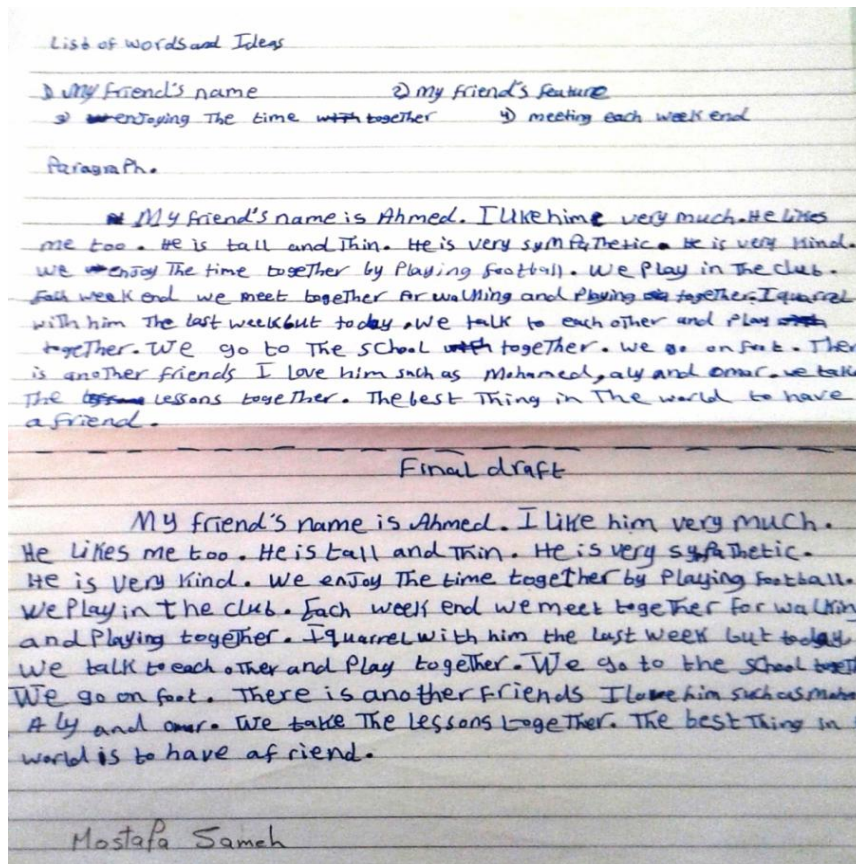 List of words and Ideas
1) My friend's name 2) my friend's feature
3) enjoying The time with together 4) meeting each week end
Paragraph.
My friend's name is Ahmed. I like hime very much. He likes
me too. He is tall and Thin. He is very sympathetic. He is very kind.
we enjoy The time together by Playing football. We Play in The club.
Each week end we meet together for walking and Playing together. I quarrel
with him The last week but today. We talk to each other and Play
together. We go to The school with together. We go on foot. Ther
is another friends I love him such as Mohamed, aly and omar. we take
The lessons together. The best Thing in The world to have
a friend.
Final draft
My friend's name is Ahmed. I like him very much.
He Likes me too. He is tall and Thin. He is very sypathetic.
He is very kind. We enjoy The time together by Playing football.
We Play in the club. Each week end we meet together for walkin
and Playing together. I quarrel with him the last week but today
we talk to each other and Play together. We go to the school togeth
We go on foot. There is another friends I love him such as moha
Aly and omar. We take The Lessons together. The best Thing in
world is to have a friend.
Mostafa Sameh